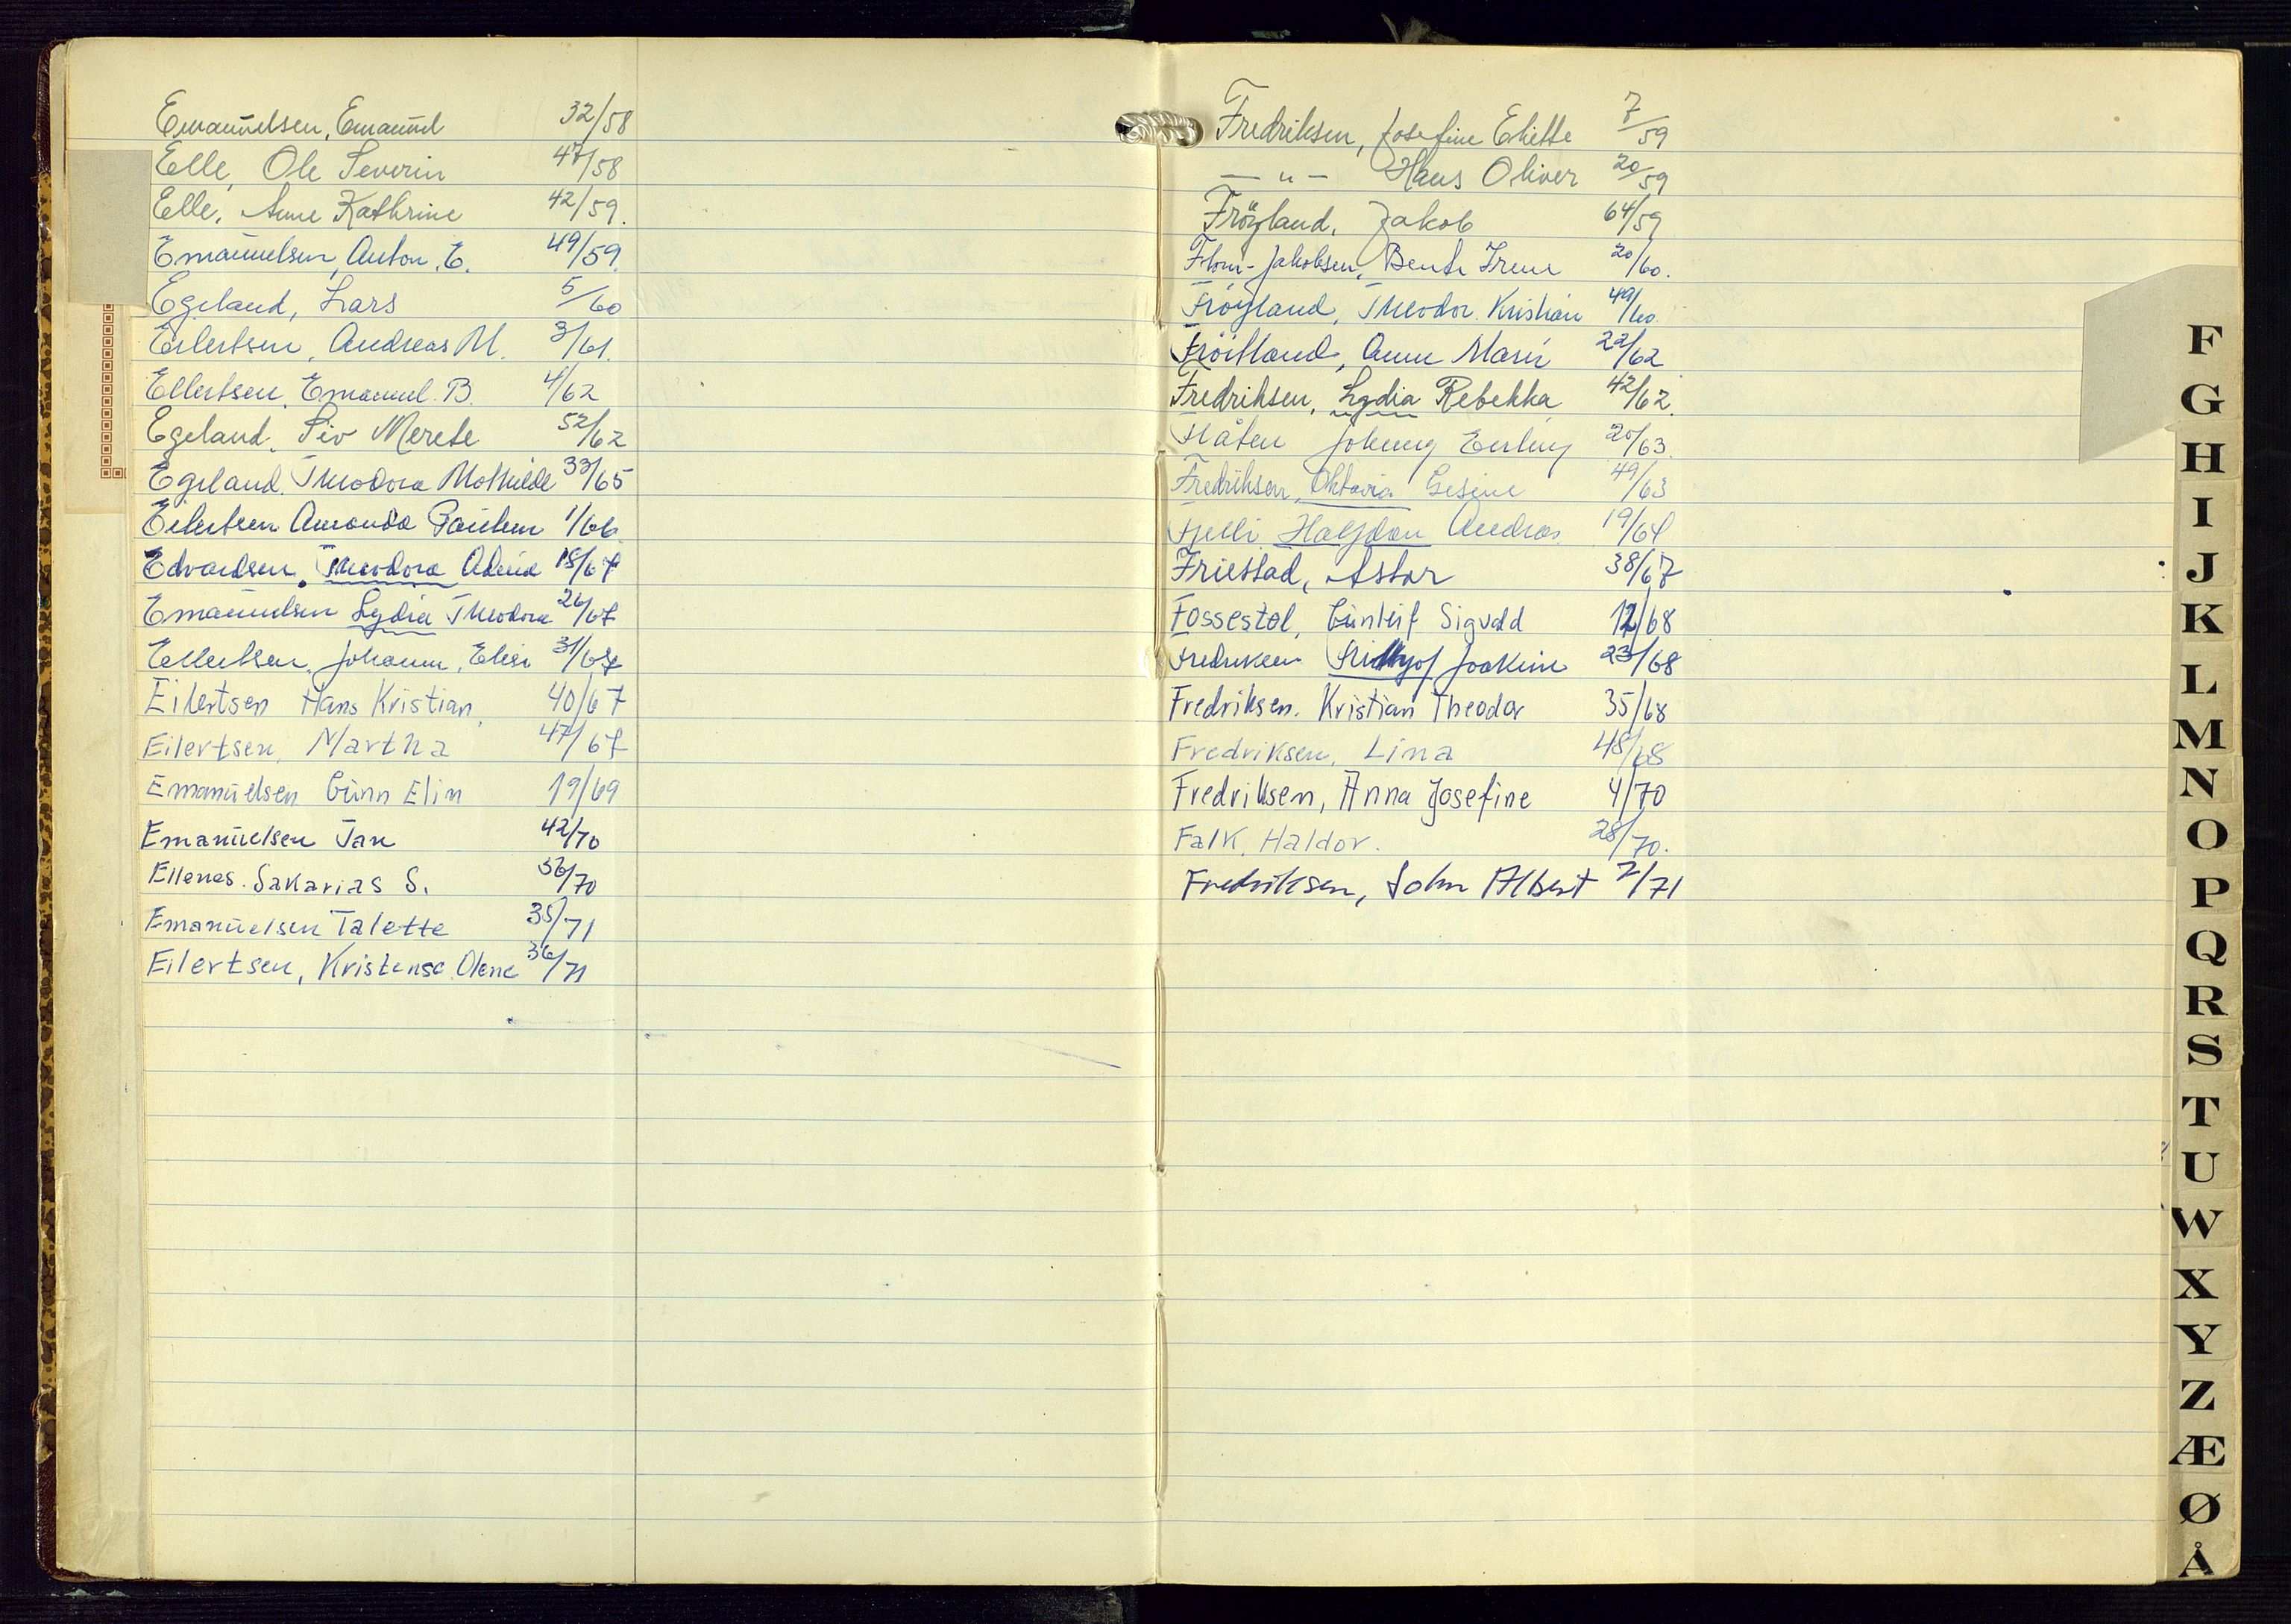 Emanuelsen, Emanuel 32/58
Elle, Ole Severin 47/58
Elle, Anne Kathrine 42/59.
Emanuelsen, Anton. E. 49/59.
Egeland, Lars 5/60
Eilertsen, Andreas M. 3/61.
Ellertsen, Emanuel. B. 4/62
Egeland, Siv Merete 52/62
Egeland, Theodora Mathilde 33/65
Eilertsen Amanda 1/66.
Edvardsen, Theodora 18/67
Emanuelsen Lydia Theodora 26/67
Ellertsen, Johanne, 31/67
Eilertsen Hans Kristian 40/67
Eilertsen, Martha 47/67
Emanuelsen Gunn Elin 19/69
Emanuelsen Jan 42/70
Ellenes. Sakarias S. 56/70
Emanuelsen Talette 35/71
Eilertsen, Kristense Olene 36/71
Fredriksen, Josefine 7/59
— " — Hans Oliver 20/59
Fröyland, Jakob 64/59
Flom-Jakobsen, Bente Irene 20/60.
Fröyland, Theodor Kristian 49/60.
Fröitland, Anne Marie 22/62
Fredriksen, Lydia Rebekka 42/62.
Flåten Johnny Erling 20/63.
Fredriksen, Oktavia Gesine 49/63
Fjelli Halfdan Andreas 19/64
Friestad, Astor 38/67
Fossestøl, Gunleif Sigvald 12/68
Fredriksen Fridtjof Joakim 23/68
Fredriksen. Kristian Theodor 35/68
Fredriksen, Lina 48/68
Fredriksen, Anna Josefine 4/70
Falk, Haldor. 28/70.
Fredriksen, John Albert 7/71
F
G
H
I
J
K
L
M
N
O
P
Q
R
S
T
U
W
X
Y
Z
Æ
Ø
Å